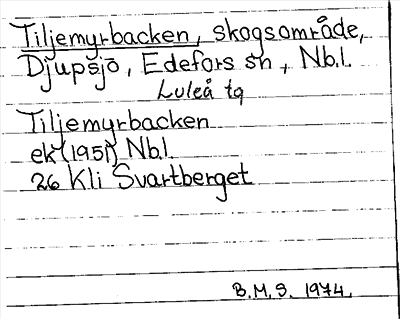 Tiljemyrbacken, skogsområde,
Djupsjö, Edefors sn, Nb.l.
Luleå tg
Tiljemyrbacken
ek (1951) Nb.l.
26 Kli Svartberget
B.M.S. 1974.